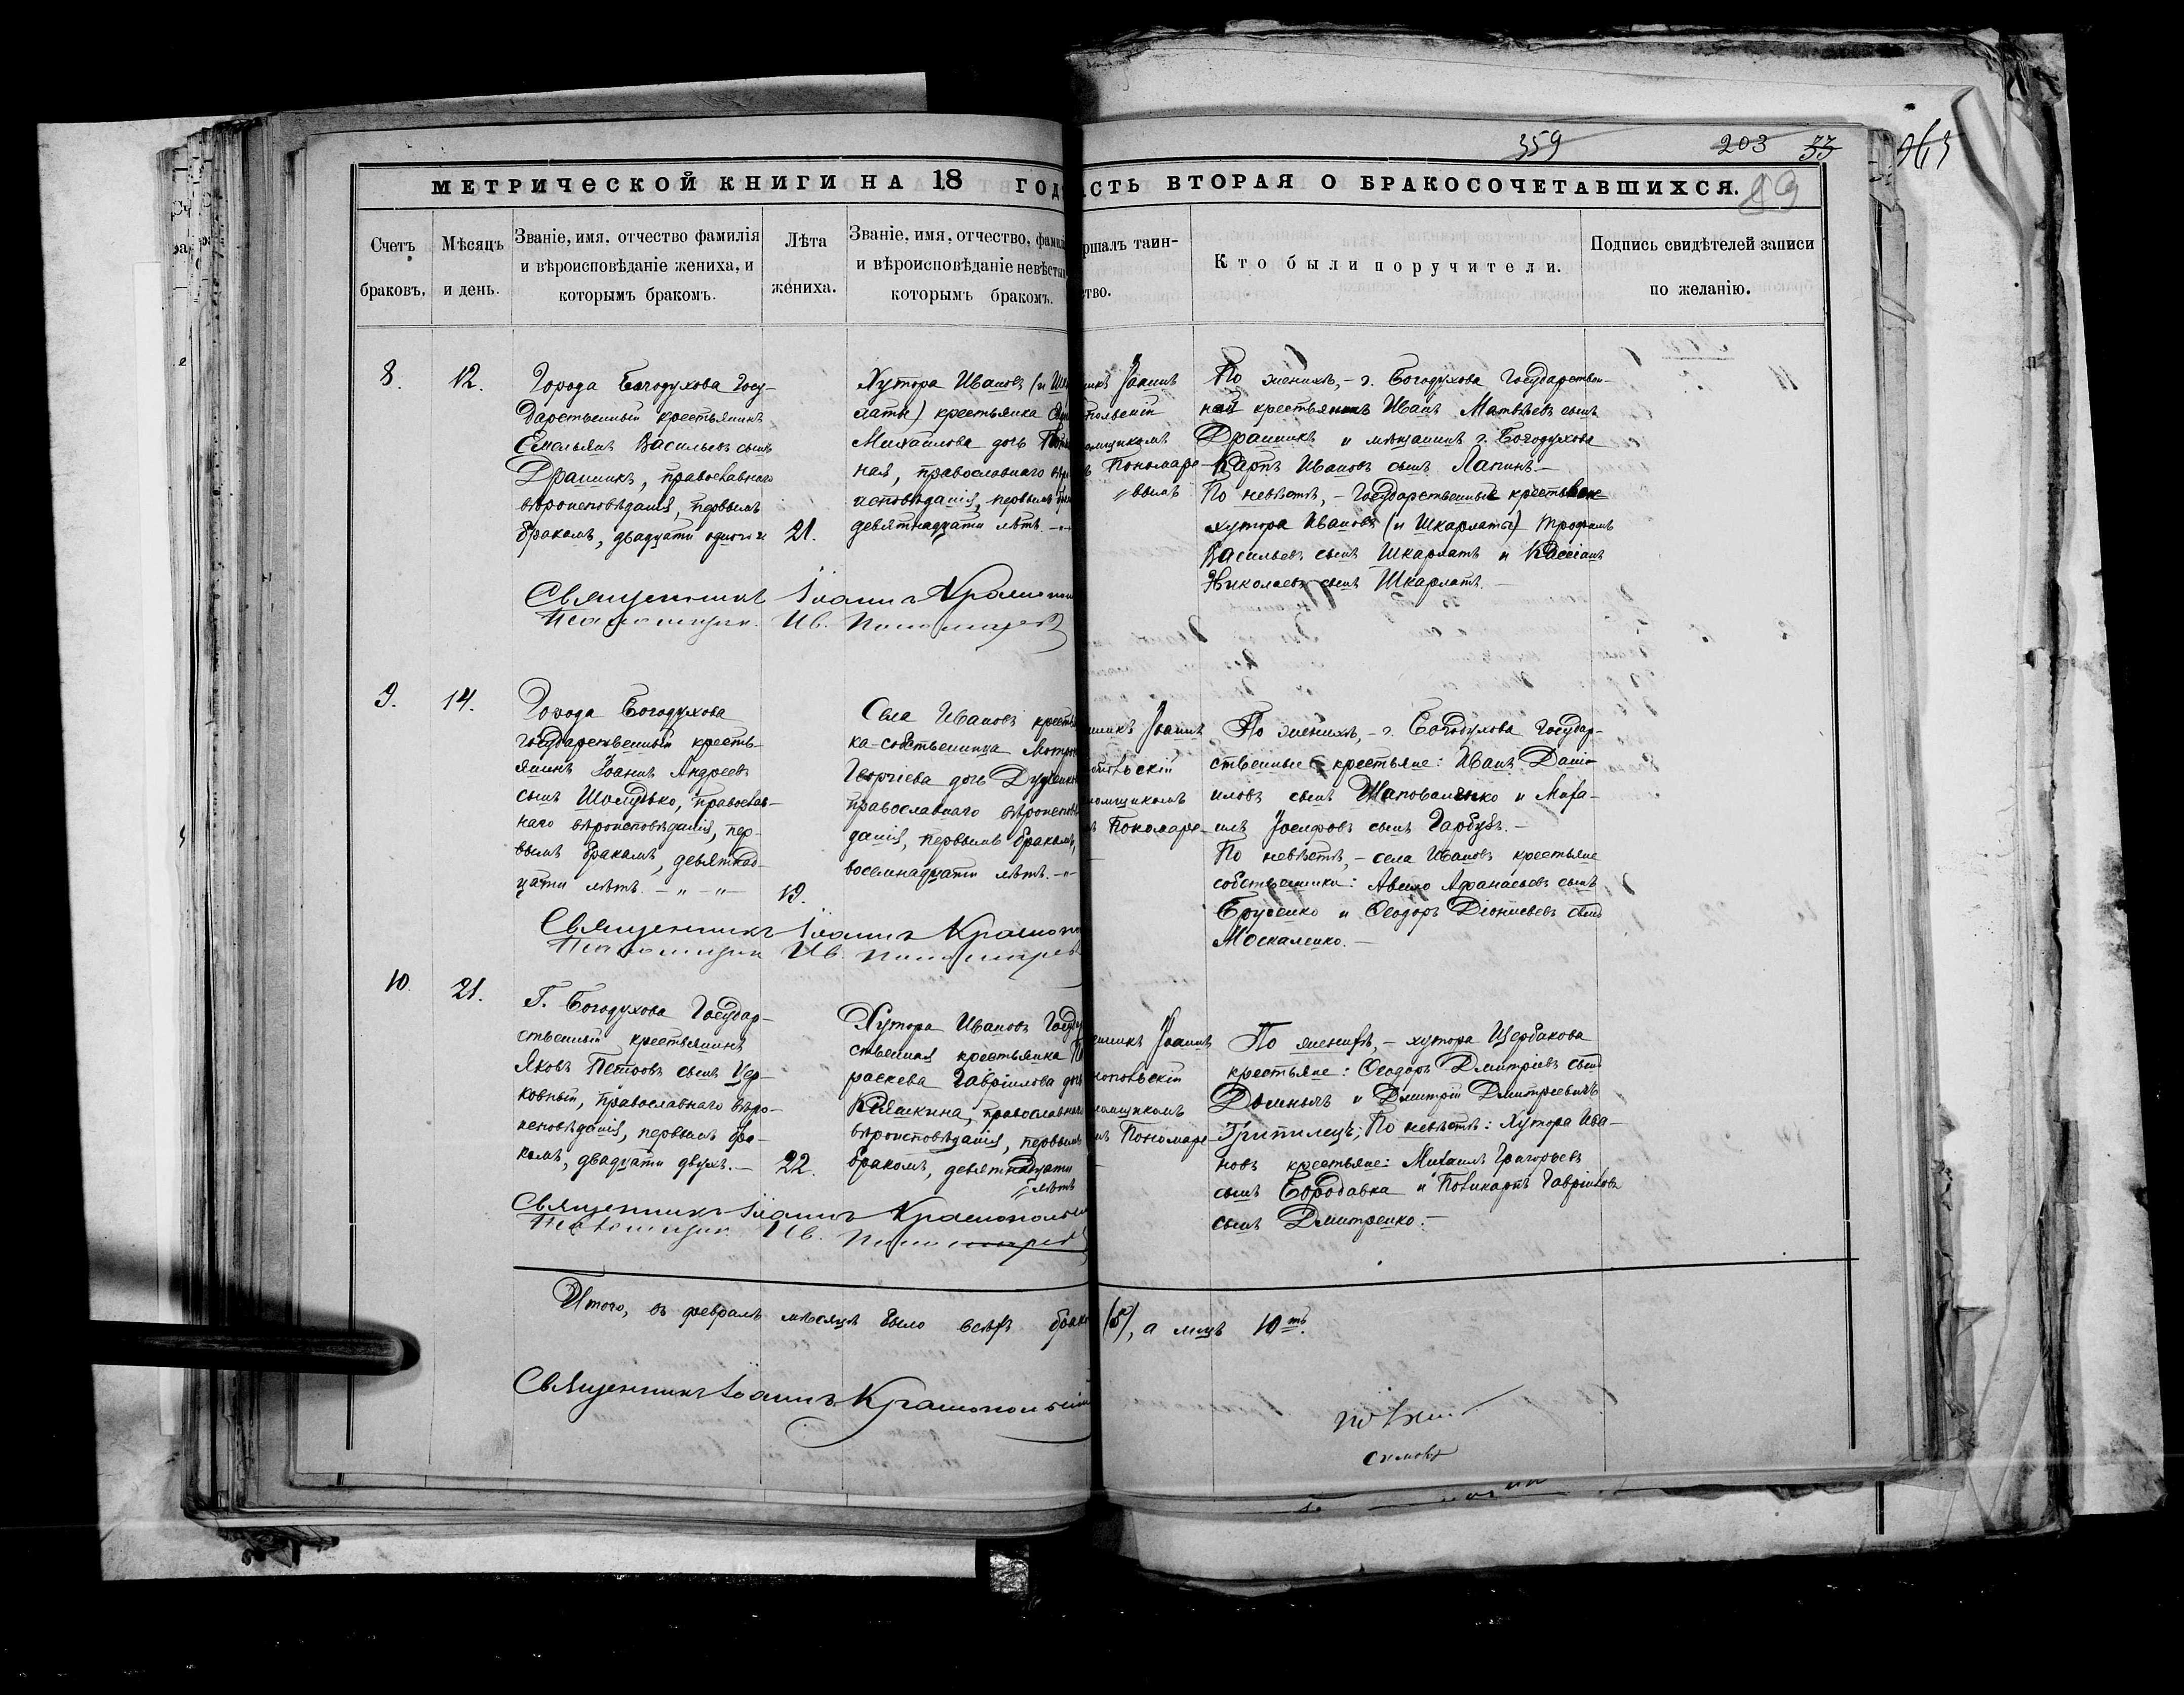 359
203 33
89
МЕТРИЧЕСКОЙ КНИГИ НА 18 ГОД
АСТЬ ВТОРАЯ О БРАКОСОЧЕТАВШИХСЯ.
Счетъ браковъ.
Мѣсяцъ и день.
Званіе, имя, отчество фамилія
и вѣроисповѣданіе жениха, и
которымъ бракомъ.
Лѣта жениха.
Званіе, имя, отчество, фамилі
и вѣроисповѣданіе невѣсты
которымъ бракомъ.
ршалъ таин-
ство.
Кто были поручители.
Подпись свидѣтелей записи
по желанію.
8.
12.
Города Богодухова Госу-
дарственный крестьянинъ
Емельянъ Васильевъ сынъ
Драшикъ, православнаго
вѣроисповѣданія, первымъ
бракомъ, двадцати одного
21.
Хутора Ивановъ (и Шка
латы) крестьянка
Михайлова дочь
ная, православнаго вѣро
исповѣданія, первымъ бра
девятнадцати лѣтъ
никъ Іоаннъ
польскій
омщикомъ
ъ Пономаре-
вымъ
По женихѣ, - г. Богодухова Государствен-
ный крестьянинъ Иванъ Матвѣевъ сынъ
Драшикъ и мѣщанинъ г. Богодухова
Карпъ Ивановъ сынъ Лапинъ. -
По невѣстѣ, - Государственные крестьяне
хутора Ивановъ (и Шкарлаты) Трофимъ
Васильевъ сынъ Шкарлатъ и Кассіанъ
Николаевъ сынъ Шкарлатъ. -
Священникъ Іоаннъ Крамопол
Псаломщик. Ив. Пономарев
9.
14.
Города Богодухова
Государственный кресть-
янинъ Іоаннъ Андреевъ
сынъ Шолудько, православ-
наго вѣроисповѣданія, пер-
вымъ бракомъ, девятнад-
цати лѣтъ. - „ - „ -
19.
Села Ивановъ кресть
ка-собственница Мотро
Георгіева дочь Дуденко
православнаго вѣроисповѣ
данія, первымъ бракомъ,
восемнадцати лѣтъ. -
никъ Іоаннъ
польскій
омщикомъ
ъ Пономаре-
По женихѣ, - г. Богодухова Государ-
ственные крестьяне: Иванъ Дані-
иловъ сынъ Шаповаленко и Миха-
илъ Іосифовъ сынъ Гарбузъ. -
По невѣстѣ, - села Ивановъ крестьяне
собственники: Авимо Афанасьевъ сынъ
Брусенко и Ѳеодоръ Діонисьевъ сынъ
Москаленко. -
Священникъ Іоаннъ Крамопо
Псаломщик Ив. Пономарев
10.
21.
Г. Богодухова Государ-
ственный крестьянинъ
Яковъ Петровъ сынъ Цер-
ковный, православнаго вѣро-
исповѣданія, первымъ бра-
комъ, двадцати двухъ. -
22.
Хутора Ивановъ Госуд
ственная крестьянка Па
раскева Гавріилова дочь
Кряшкина, православнаго
вѣроисповѣданія, первымъ
бракомъ, девятнадцати
лѣтъ
никъ Іоаннъ
нопольскій
омщикомъ
ъ Пономаре-
По женихѣ, - хутора Щербакова
крестьяне: Ѳеодоръ Дмитріевъ сынъ
и Дмитрій Дмитріевичъ
Грипилецъ; По невѣстѣ: Хутора Ива-
новъ крестьяне: Михаилъ Григорьевъ
сынъ Бородавка и Поликарпъ Гавріиловъ
сынъ Дмитренко. -
Священникъ Іоаннъ Крамополь
Псаломщик. Ив. Пономарев
Итого, въ февралѣ мѣсяцѣ было всѣхъ брако (5), а лицъ 10ть.
Священникъ Іоаннъ Крамопольскій